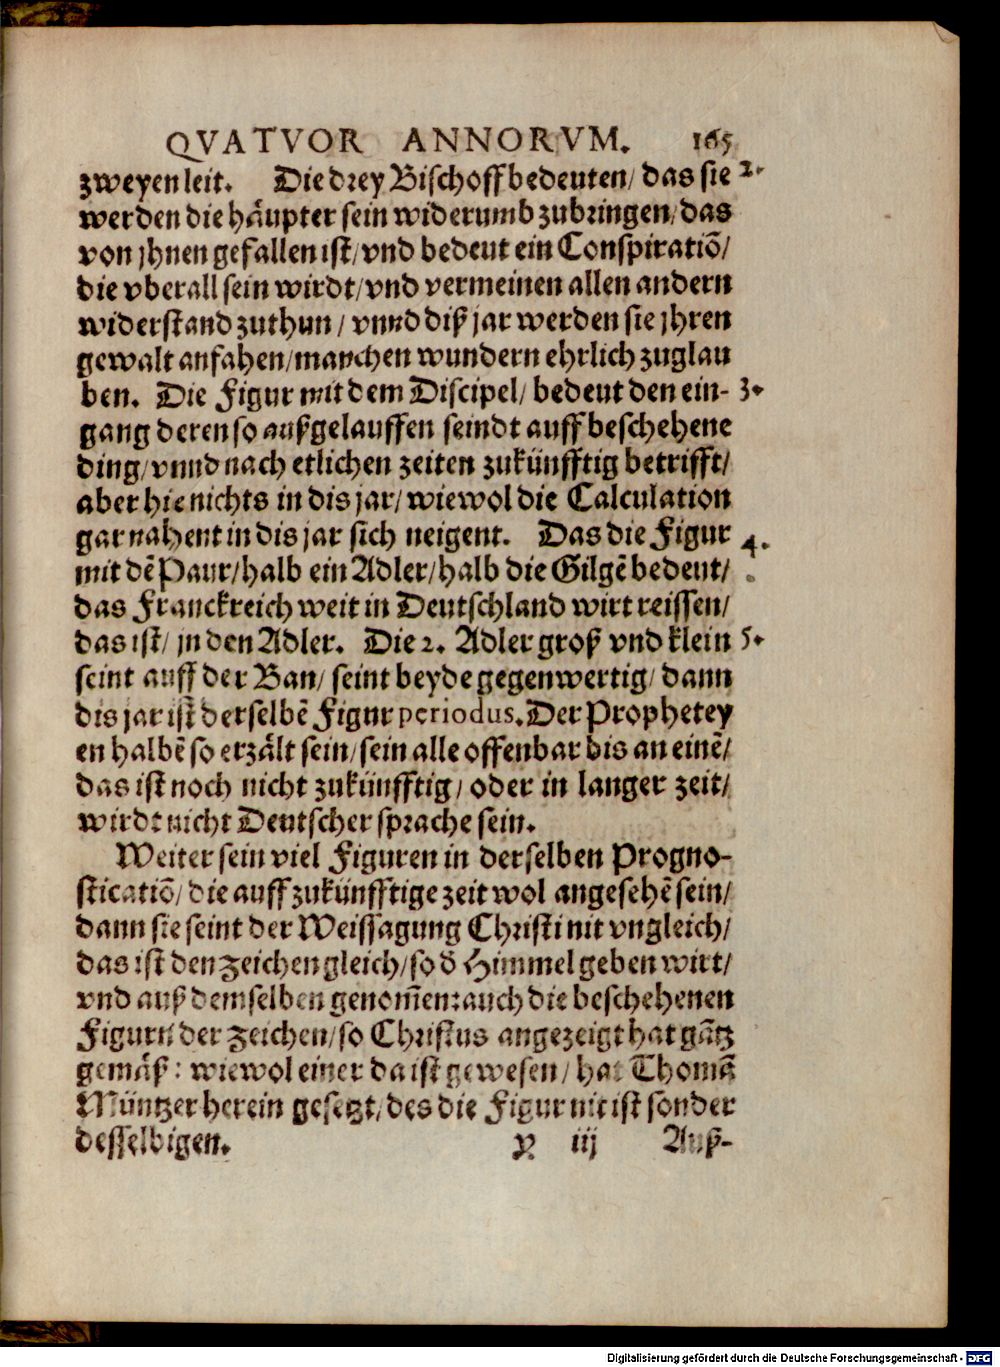 QVATVOR ANNORVM. 165
zweyen leit. Die drey Bischoff bedeuten/ das sie 2.
werden die häupter sein widerumb zubringen/ das
von jhnen gefallen ist/ vnd bedeut ein Conspiratiõ/
die vberall sein wirdt/ vnd vermeinen allen andern
widerstand zuthun/ vnnd diß jar werden sie jhren
gewalt anfahen/ manchen wundern ehrlich zuglau
ben. Die Figur mit dem Discipel/ bedeut den ein- 3.
gang deren so außgelauffen seindt auff beschehene
ding/ vnnd nach etlichen zeiten zukünfftig betrifft/
aber hie nichts in dis jar/ wiewol die Calculation
gar nahent in dis jar sich neigent. Das die Figur 4.
mit dẽ Paur/ halb ein Adler/ halb die Gilgẽ bedeut/
das Franckreich weit in Deutschland wirt reissen/
das ist/ jn den Adler. Die 2. Adler groß vnd klein 5.
seint auff der Ban/ seint beyde gegenwertig/ dann
dis jar ist derselbẽ Figur periodus. Der Prophetey
en halbẽ so erzält sein/ sein alle offenbar bis an einẽ/
das ist noch nicht zukünfftig/ oder in langer zeit/
wirdt nicht Deutscher sprache sein.
Weiter sein viel Figuren in derselben Progno-
sticatiõ/ die auff zukünfftige zeit wol angesehẽ sein/
dann sie seint der Weissagung Christi nit vngleich/
das ist den zeichen gleich/ so d̃ Himmel geben wirt/
vnd auß demselben genom̃en: auch die beschehenen
Figurn der zeichen/ so Christus angezeigt hat gãtz
gemäß: wiewol einer da ist gewesen/ hat Thomã
Müntzer herein gesetzt/ des die Figur nit ist sonder
desselbigen. X iij Auß-
Digitalisierung gefördert durch die Deutsche Forschungsgemeinschaft - DFG